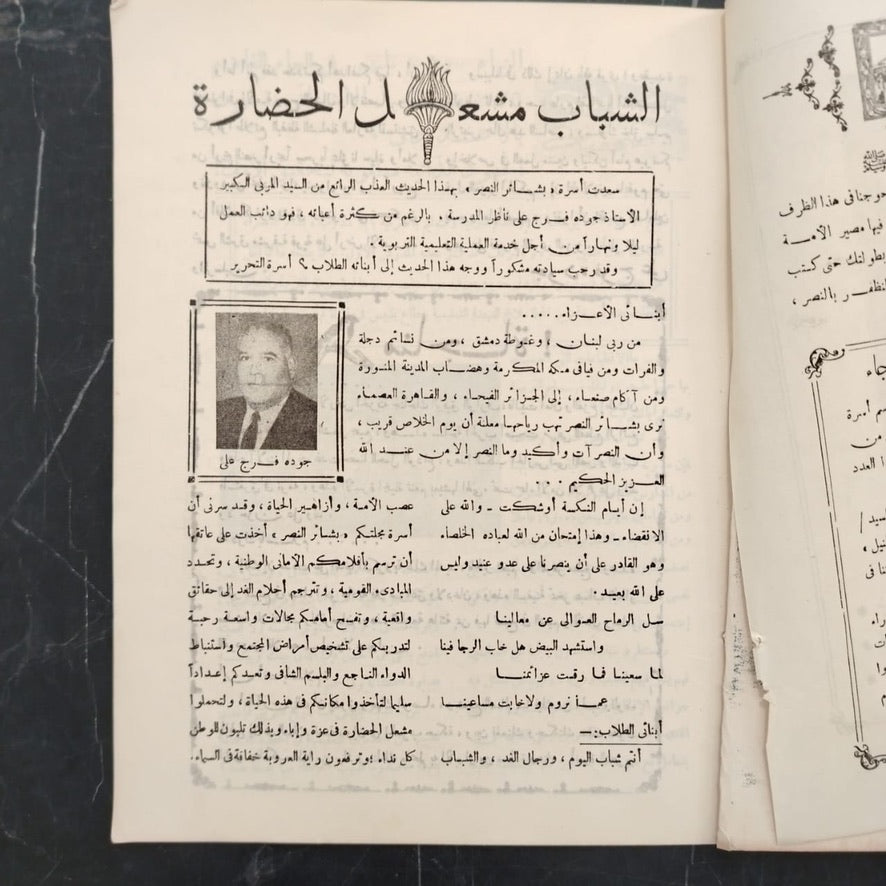 الشباب مشعل الحضارة
سعدت أسرة « بشائر النصر » بهذا الحديث العذب الرائع من السيد المربى الكبير
الأستاذ جوده فرج على ناظر المدرسة . بالرغم من كثرة أعبائه ، فهو دائب العمل
ليلا ونهاراً من أجل خدمة العملية التعليمية التربوية .
وقد رحب سيادته مشكوراً ووجه هذا الحديث إلى أبنائه الطلاب ؟ أسرة التحرير
جوده فرج على
أبنائى الأعزاء . . . . .
من ربى لبنان ، وغوطة دمشق ، ومن نسائم دجلة
والفرات ومن فيافى مكه المكرمة وهضاب المدينة المنورة
ومن آكام صنعاء ، إلى الجزائر الفيحاء ، والقاهرة العصماء
نرى بشائر النصر تهب رياحها معلنة أن يوم الخلاص قريب ،
وأن النصر آت وأكيد وما النصر إلا من عند الله
العزيز الحكيم . . .
إن أيام النكسة أوشكت - والله على
الانقضاء - وهذا إمتحان من الله لعباده الخلصاء
وهو القادر على أن ينصرنا على عدو عنيد وليس
على الله ببعيد .
سل الرماح العوالى عن معالينا
واستشهد البيض هل خاب الرجا فينا
لما سعينا فما رقت عزائمنا
عما نروم ولا خابت مساعينا
أبنائى الطلاب :—
أنتم شباب اليوم ، ورجال الغد ، والشباب
عصب الأمة ، وأزاهير الحياة ، وقد سرنى أن
أسرة مجلتكم « بشائر النصر » أخذت على عاتقها
أن ترسم بأقلامكم الأمانى الوطنية ، وتحدد
المبادىء القومية ، وتترجم أحلام الغد إلى حقائق
واقعية ، وتفسح أمامكم مجالات واسعة رحبة
لتدريبكم على تشخيص أمراض المجتمع واستنباط
الدواء الناجع والبلسم الشافى وتعدكم إعداداً
سليما لتأخذوا مكانكم فى هذه الحياة ، ولتحملوا
مشعل الحضارة فى عزة وإباء وبذلك تلبون للوطن
كل نداء ؛ وترفعون راية العروبة خفاقة فى السماء .
حوجنا فى هذا الظرف
فيها مصير الأمة
بطولتك حتى كتب
بالنصر ،
جاء
أسرة
من
العدد